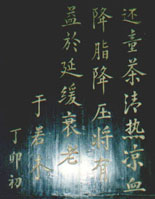 还童茶清热凉血
降脂降压将有
益於延缓衰老
于若木
丁卯初